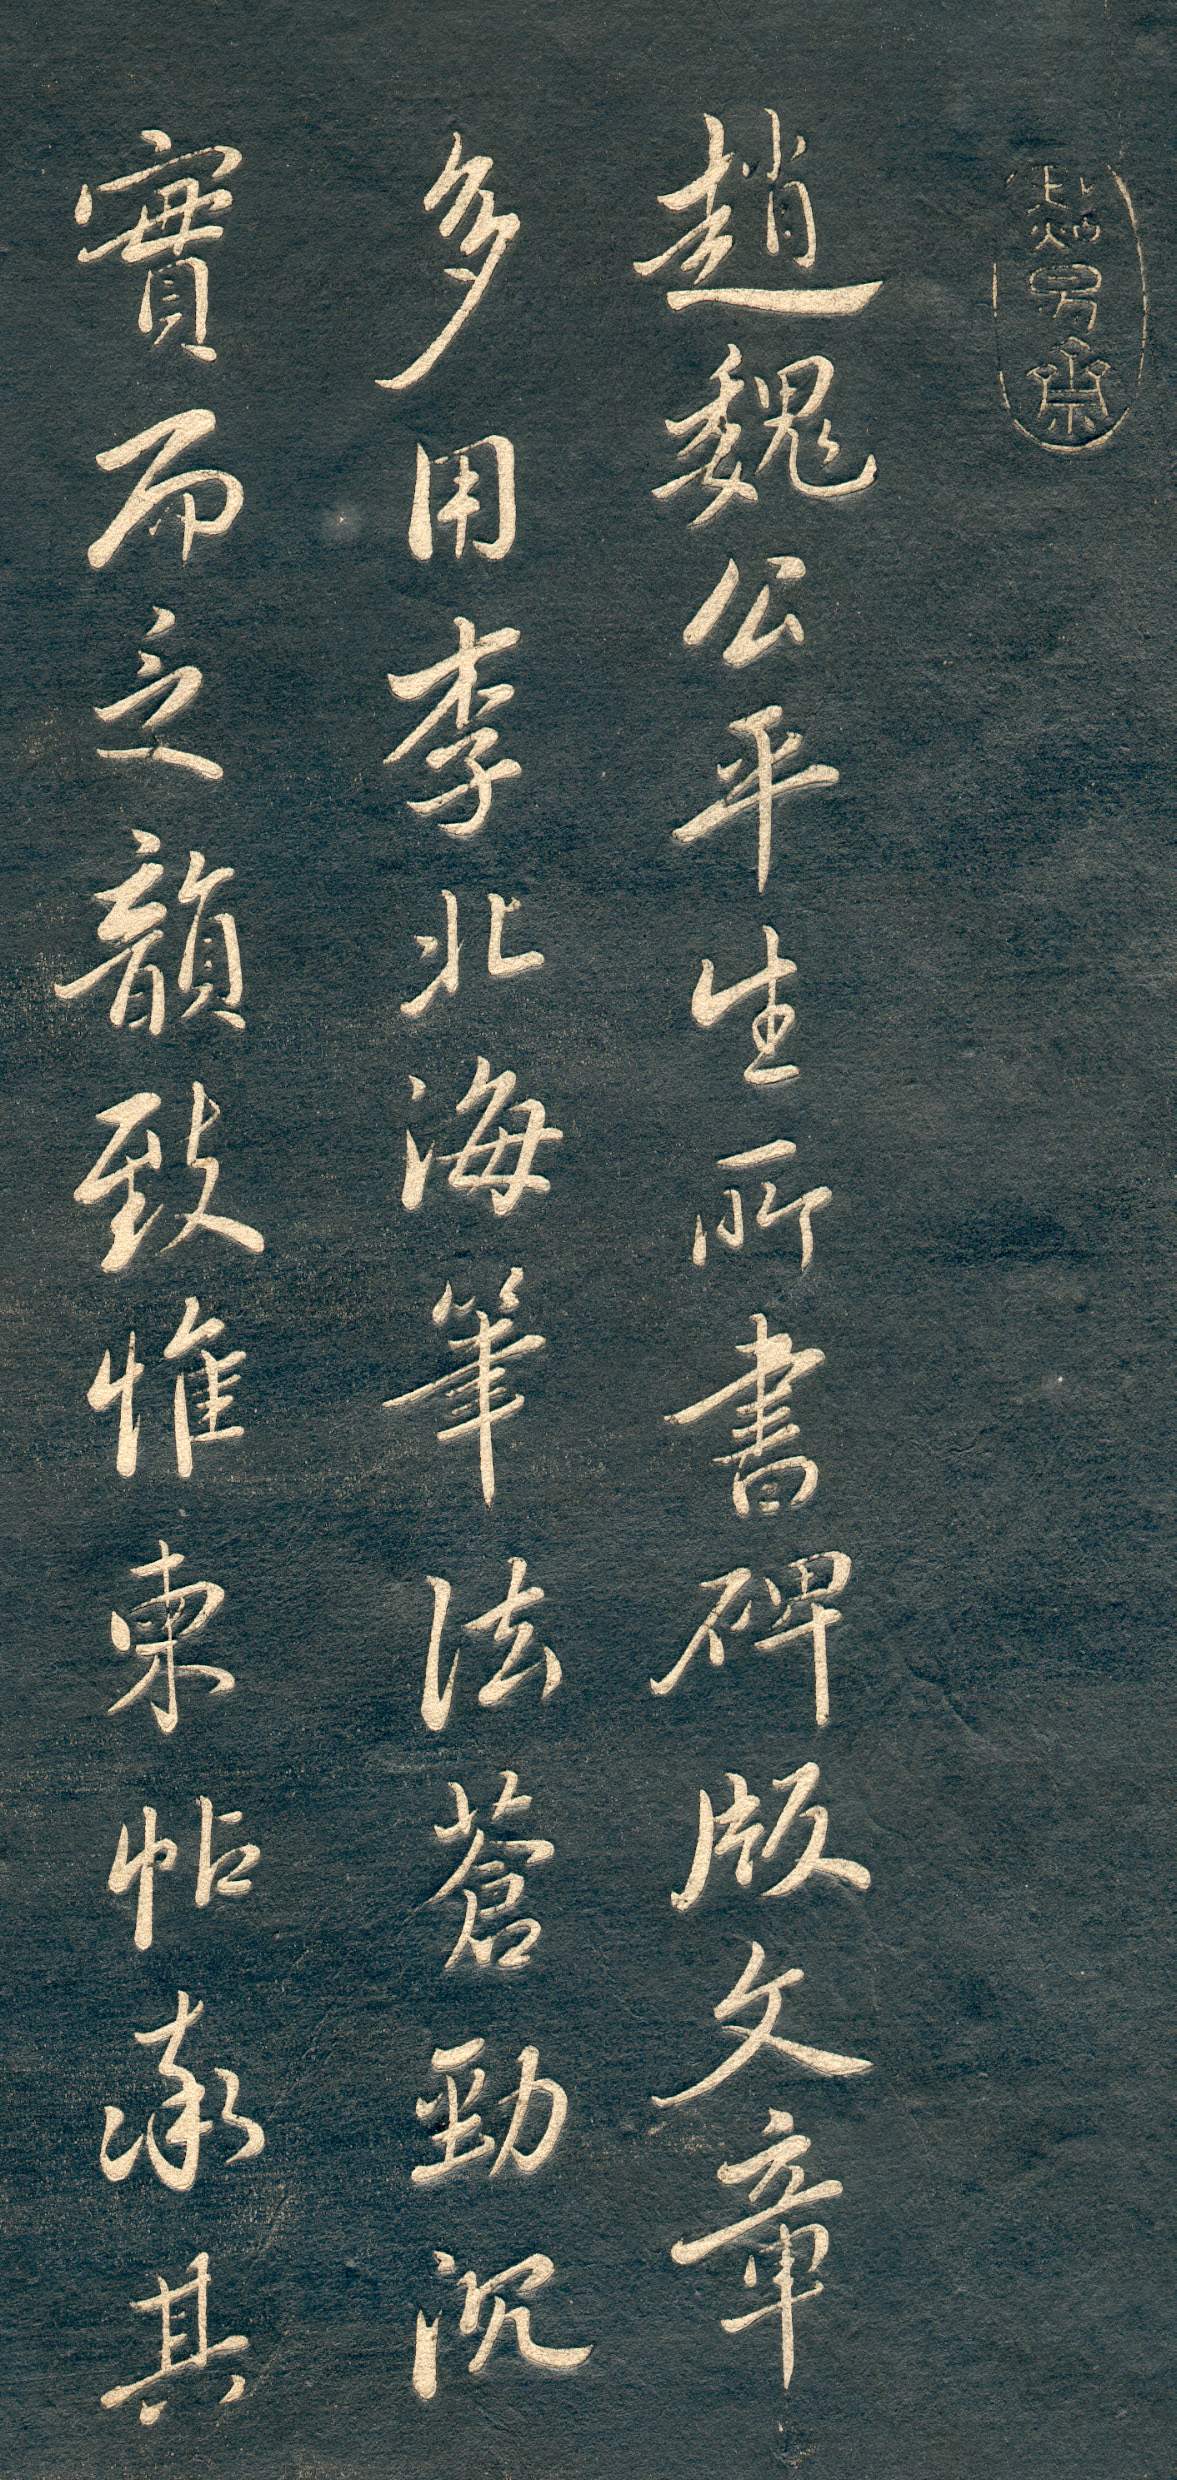 趙魏公平生所書碑版文章
多用李北海筆法蒼勁沉
實而乏韻致惟柬帖家其